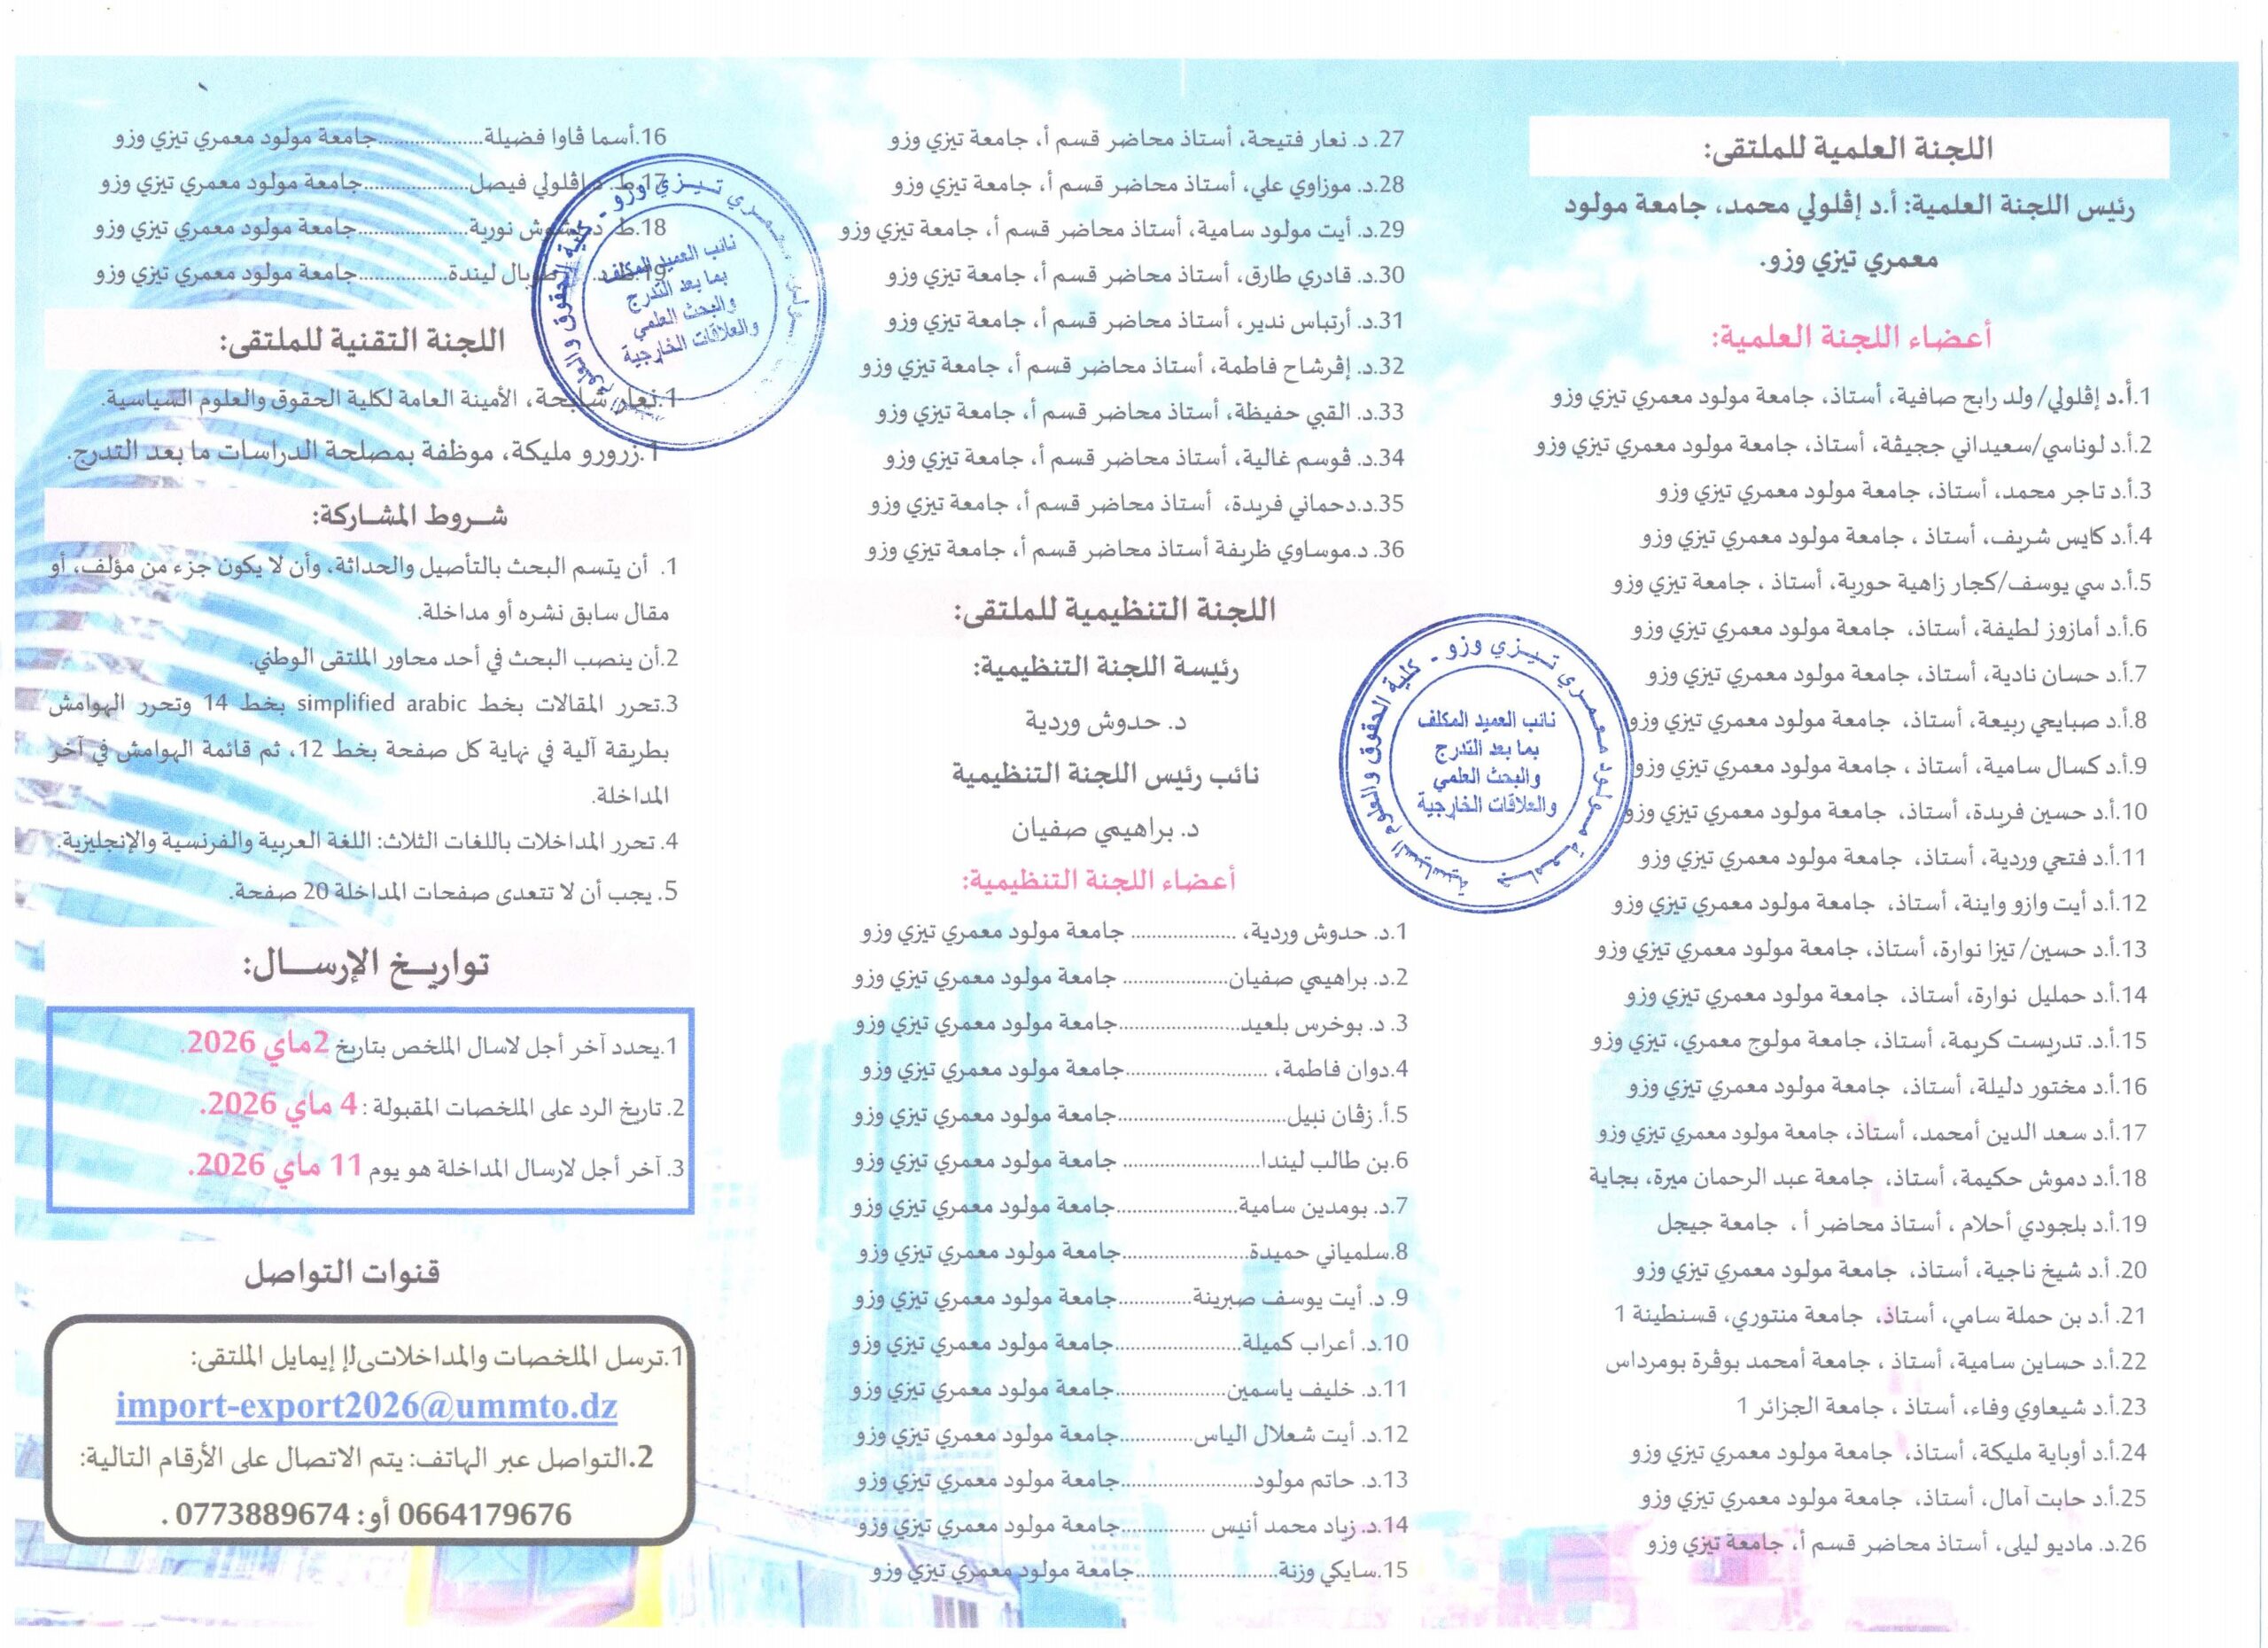 اللجنة العلمية للملتقى:
رئيس اللجنة العلمية: أ.د إڤلولي محمد، جامعة مولود
معمري تيزي وزو.
أعضاء اللجنة العلمية:
1.أ.د إڤلولي/ ولد رابح صافية، أستاذ، جامعة مولود معمري تيزي وزو
2.أ.د لوناسي/سعيداني ججيڤة، أستاذ، جامعة مولود معمري تيزي وزو
3.أ.د تاجر محمد، أستاذ، جامعة مولود معمري تيزي وزو
4.أ.د كايس شريف، أستاذ ، جامعة مولود معمري تيزي وزو
5.أ.د سي يوسف/كجار زاهية حورية، أستاذ ، جامعة تيزي وزو
6.أ.د أمازوز لطيفة، أستاذ، جامعة مولود معمري تيزي وزو
7.أ.د حسان نادية، أستاذ، جامعة مولود معمري تيزي وزو
8.أ.د صبايحي ربيعة، أستاذ، جامعة مولود معمري تيزي وزو
9.أ.د كسال سامية، أستاذ ، جامعة مولود معمري تيزي وزو
10.أ.د حسين فريدة، أستاذ، جامعة مولود معمري تيزي وزو
11.أ.د فتحي وردية، أستاذ، جامعة مولود معمري تيزي وزو
12.أ.د أيت وازو واينة، أستاذ، جامعة مولود معمري تيزي وزو
13.أ.د حسين/ تيزا نوارة، أستاذ، جامعة مولود معمري تيزي وزو
14.أ.د حمليل نوارة، أستاذ، جامعة مولود معمري تيزي وزو
15.أ.د. تدريست كريمة، أستاذ، جامعة مولوج معمري، تيزي وزو
16.أ.د مختور دليلة، أستاذ، جامعة مولود معمري تيزي وزو
17.أ.د سعد الدين أمحمد، أستاذ، جامعة مولود معمري تيزي وزو
18.أ.د دموش حكيمة، أستاذ، جامعة عبد الرحمان ميرة، بجاية
19.أ.د بلجودي أحلام ، أستاذ محاضر أ ، جامعة جيجل
20. أ.د شيخ ناجية، أستاذ، جامعة مولود معمري تيزي وزو
21. أ.د بن حملة سامي، أستاذ، جامعة منتوري، قسنطينة 1
22.أ.د حساين سامية، أستاذ ، جامعة أمحمد بوڤرة بومرداس
23.أ.د شيعاوي وفاء، أستاذ ، جامعة الجزائر 1
24.أ.د أوباية مليكة، أستاذ، جامعة مولود معمري تيزي وزو
25.أ.د حابت آمال، أستاذ، جامعة مولود معمري تيزي وزو
26.د. ماديو ليلى، أستاذ محاضر قسم أ، جامعة تيزي وزو
27. د. نعار فتيحة، أستاذ محاضر قسم أ، جامعة تيزي وزو
28.د. موزاوي علي، أستاذ محاضر قسم أ، جامعة تيزي وزو
29.د. أيت مولود سامية، أستاذ محاضر قسم أ، جامعة تيزي وزو
30.د. قادري طارق، أستاذ محاضر قسم أ، جامعة تيزي وزو
31.د. أرتباس ندير، أستاذ محاضر قسم أ، جامعة تيزي وزو
32.د. إڤرشاح فاطمة، أستاذ محاضر قسم أ، جامعة تيزي وزو
33.د. القبي حفيظة، أستاذ محاضر قسم أ، جامعة تيزي وزو
34.د. ڤوسم غالية، أستاذ محاضر قسم أ، جامعة تيزي وزو
35.د.دحماني فريدة، أستاذ محاضر قسم أ، جامعة تيزي وزو
36. د.موساوي ظريفة أستاذ محاضر قسم أ، جامعة تيزي وزو
اللجنة التنظيمية للملتقى:
رئيسة اللجنة التنظيمية:
د. حدوش وردية
نائب رئيس اللجنة التنظيمية
د. براهيمي صفيان
أعضاء اللجنة التنظيمية:
1.د. حدوش وردية، .................. جامعة مولود معمري تيزي وزو
2.د. براهيمي صفيان.................. جامعة مولود معمري تيزي وزو
3. د. بوخرس بلعيد.....................جامعة مولود معمري تيزي وزو
4.دوان فاطمة، ........................جامعة مولود معمري تيزي وزو
5.أ. زڤان نبيل.............................جامعة مولود معمري تيزي وزو
6.بن طالب ليندا........................ جامعة مولود معمري تيزي وزو
7.د. بومدين سامية.....................جامعة مولود معمري تيزي وزو
8.سلمياني حميدة......................جامعة مولود معمري تيزي وزو
9. د. أيت يوسف صبرينة.............جامعة مولود معمري تيزي وزو
10.د. أعراب كميلة......................جامعة مولود معمري تيزي وزو
11.د. خليف ياسمين...................جامعة مولود معمري تيزي وزو
12.د. أيت شعلال الياس.............جامعة مولود معمري تيزي وزو
13.د. حاتم مولود.......................جامعة مولود معمري تيزي وزو
14.د. زياد محمد أنيس ..............جامعة مولود معمري تيزي وزو
15.سايكي وزنة........................جامعة مولود معمري تيزي وزو
16.أسما ڤاوا فضيلة..................جامعة مولود معمري تيزي وزو
17.ط. د إڤلولي فيصل..................جامعة مولود معمري تيزي وزو
18.ط د نورية...................جامعة مولود معمري تيزي وزو
19.ط.د. طوبال ليندة...............جامعة مولود معمري تيزي وزو
اللجنة التقنية للملتقى:
1.نعار شابحة، الأمينة العامة لكلية الحقوق والعلوم السياسية.
1.زرورو مليكة، موظفة بمصلحة الدراسات ما بعد التدرج.
شـروط المشـاركة:
1. أن يتسم البحث بالتأصيل والحداثة، وأن لا يكون جزء من مؤلف، أو
مقال سابق نشره أو مداخلة.
2.أن ينصب البحث في أحد محاور الملتقى الوطني.
3.تحرر المقالات بخط simplified arabic بخط 14 وتحرر الهوامش
بطريقة آلية في نهاية كل صفحة بخط 12، ثم قائمة الهوامش في آخر
المداخلة.
4. تحرر المداخلات باللغات الثلاث: اللغة العربية والفرنسية والإنجليزية.
5. يجب أن لا تتعدى صفحات المداخلة 20 صفحة.
تواريـخ الإرســال:
1.يحدد آخر أجل لاسال الملخص بتاريخ 2ماي 2026.
2. تاريخ الرد على الملخصات المقبولة : 4 ماي 2026.
3. آخر أجل لارسال المداخلة هو يوم 11 ماي 2026.
قنوات التواصل
1.ترسل الملخصات والمداخلاتىلإ إيمايل الملتقى:
import-export2026@ummto.dz
2.التواصل عبر الهاتف: يتم الاتصال على الأرقام التالية:
0664179676 أو: 0773889674 .
جامعة مولود معمري تيزي وزو - كلية الحقوق والعلوم السياسية
نائب العميد المكلف
بما بعد التدرج
والبحث العلمي
والعلاقات الخارجية
جامعة مولود معمري تيزي وزو - كلية الحقوق والعلوم السياسية
نائب العميد المكلف
بما بعد التدرج
والبحث العلمي
والعلاقات الخارجية